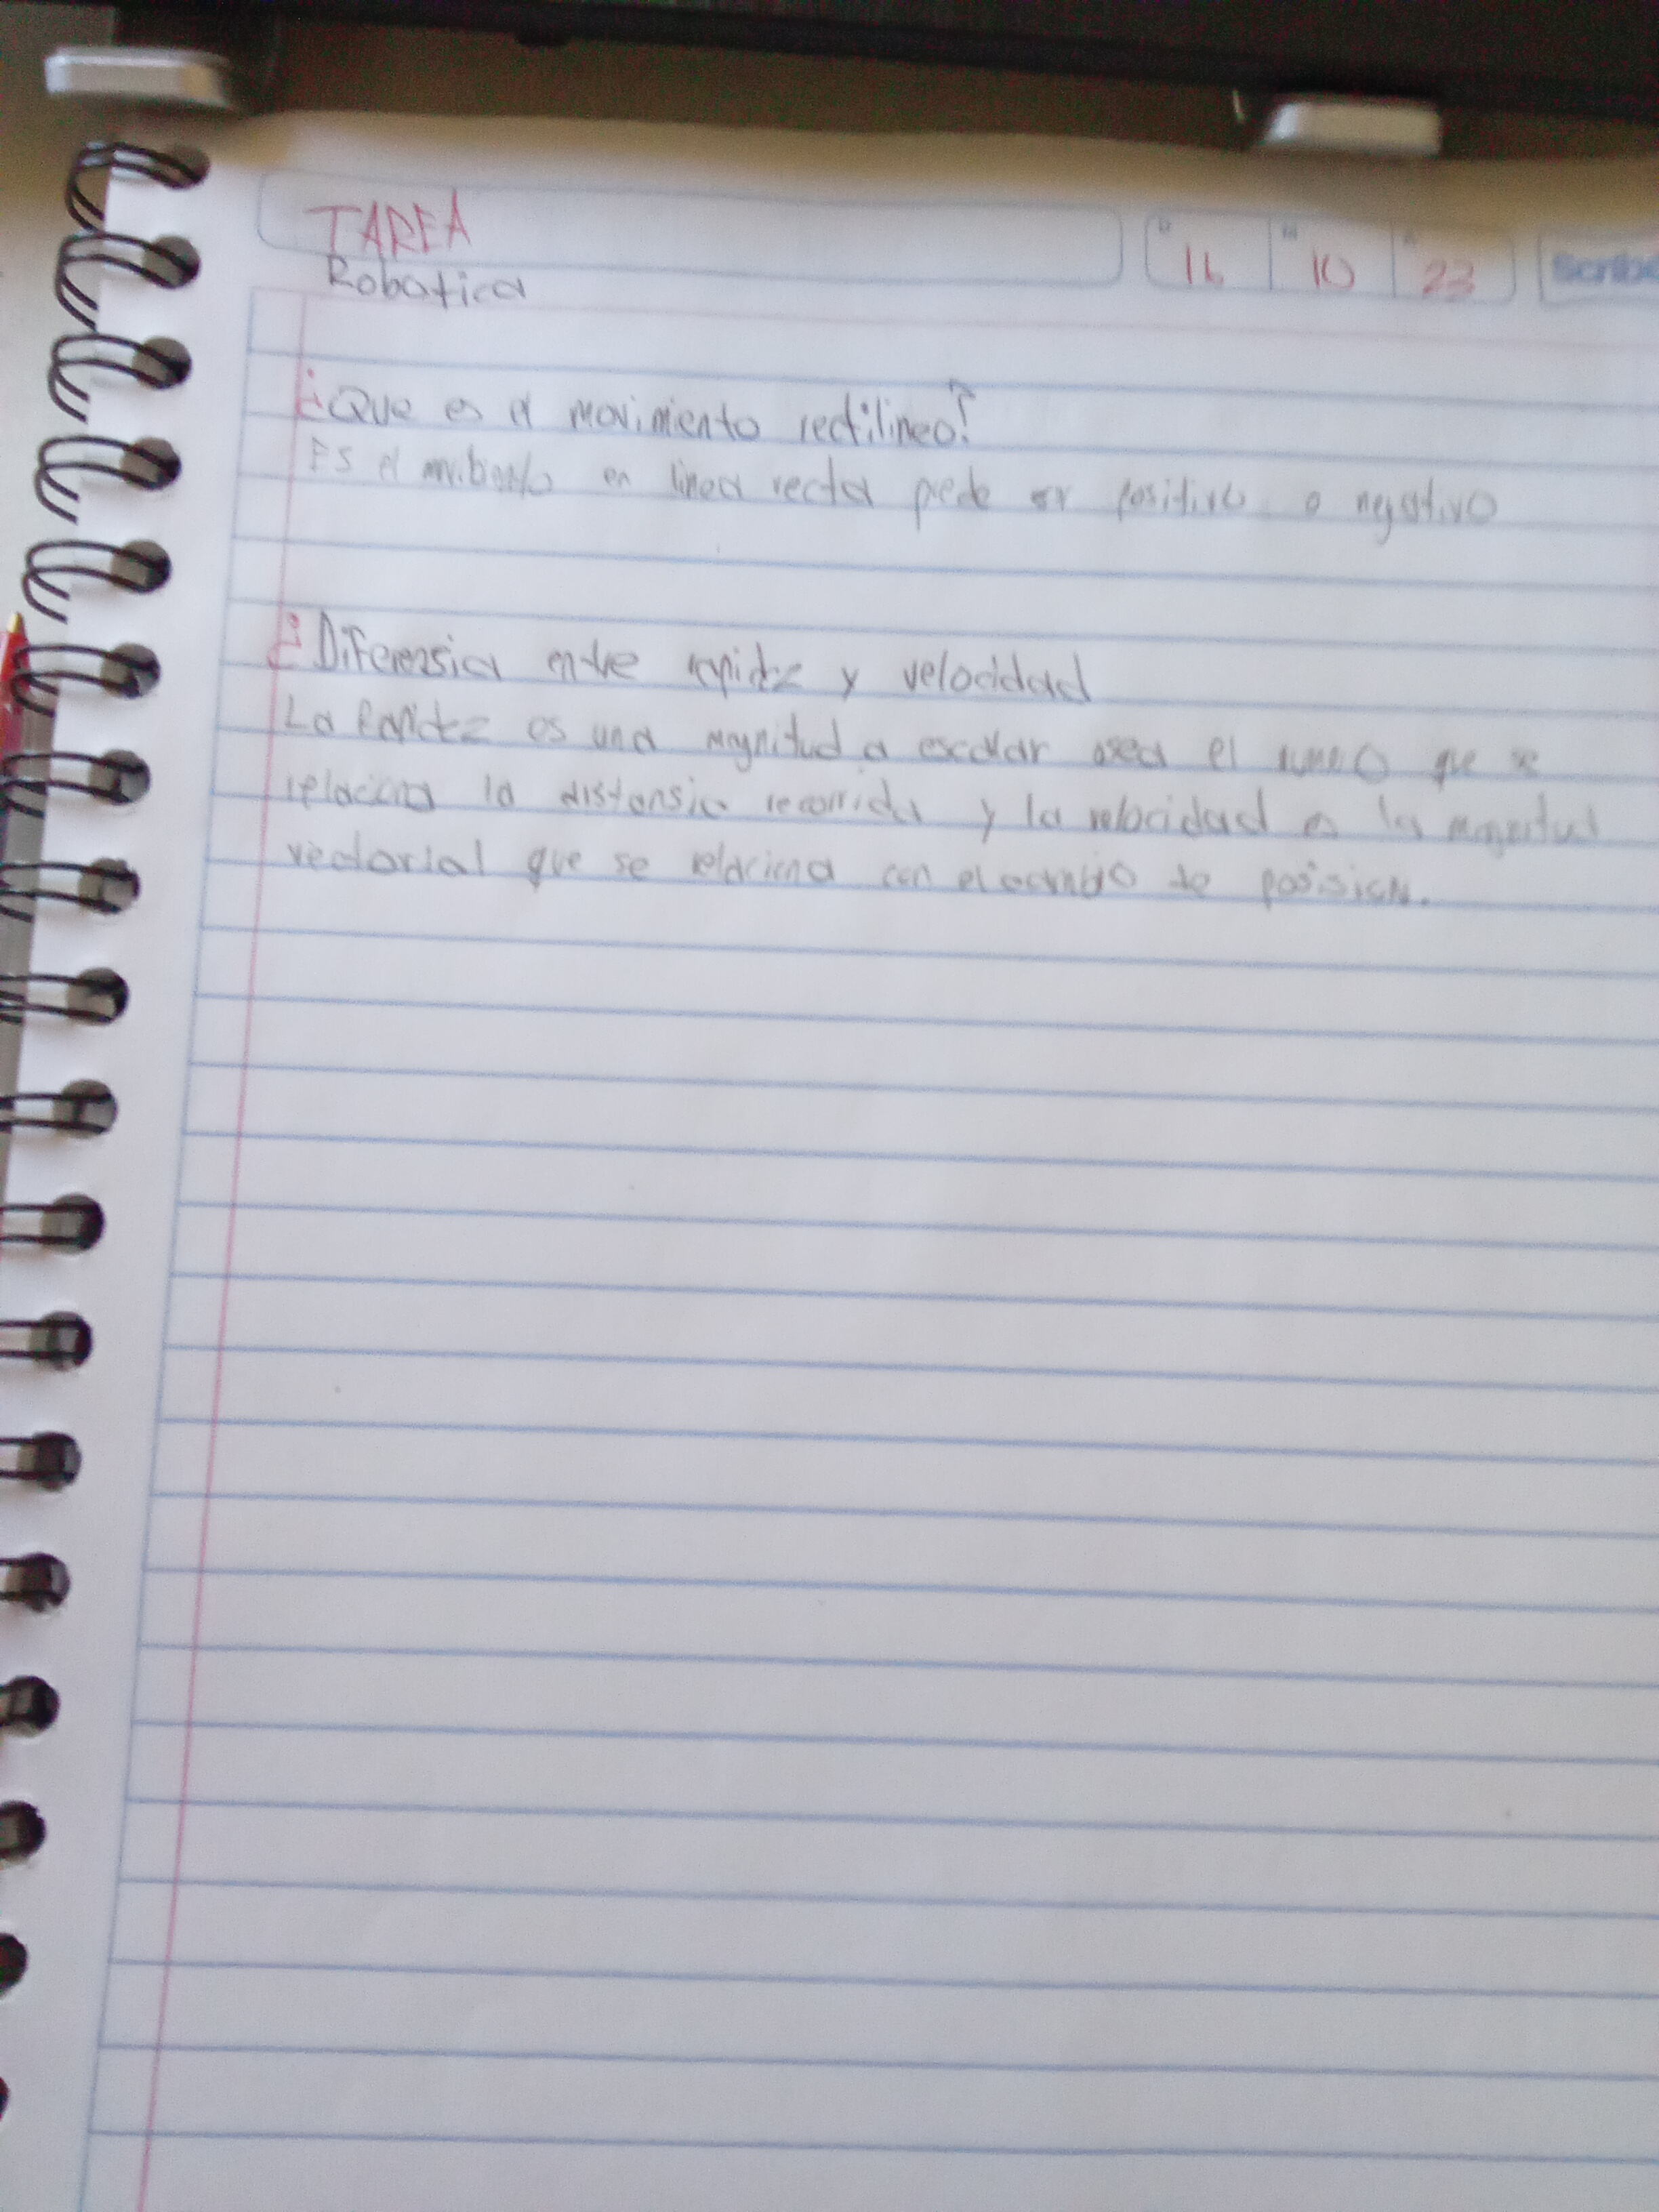 TAREA
16 10 23
Robotica
¿Que es el movimiento rectilineo?
Es el en linea recta puede ser positivo o negativo
¿Diferensia entre rapidez y velocidad
La Rapidez es una magnitud a escalar osea el que se
relaciona la distansia recorrida y la velocidad es la magnitud
vectorial que se relaciona con el cambio de posision.